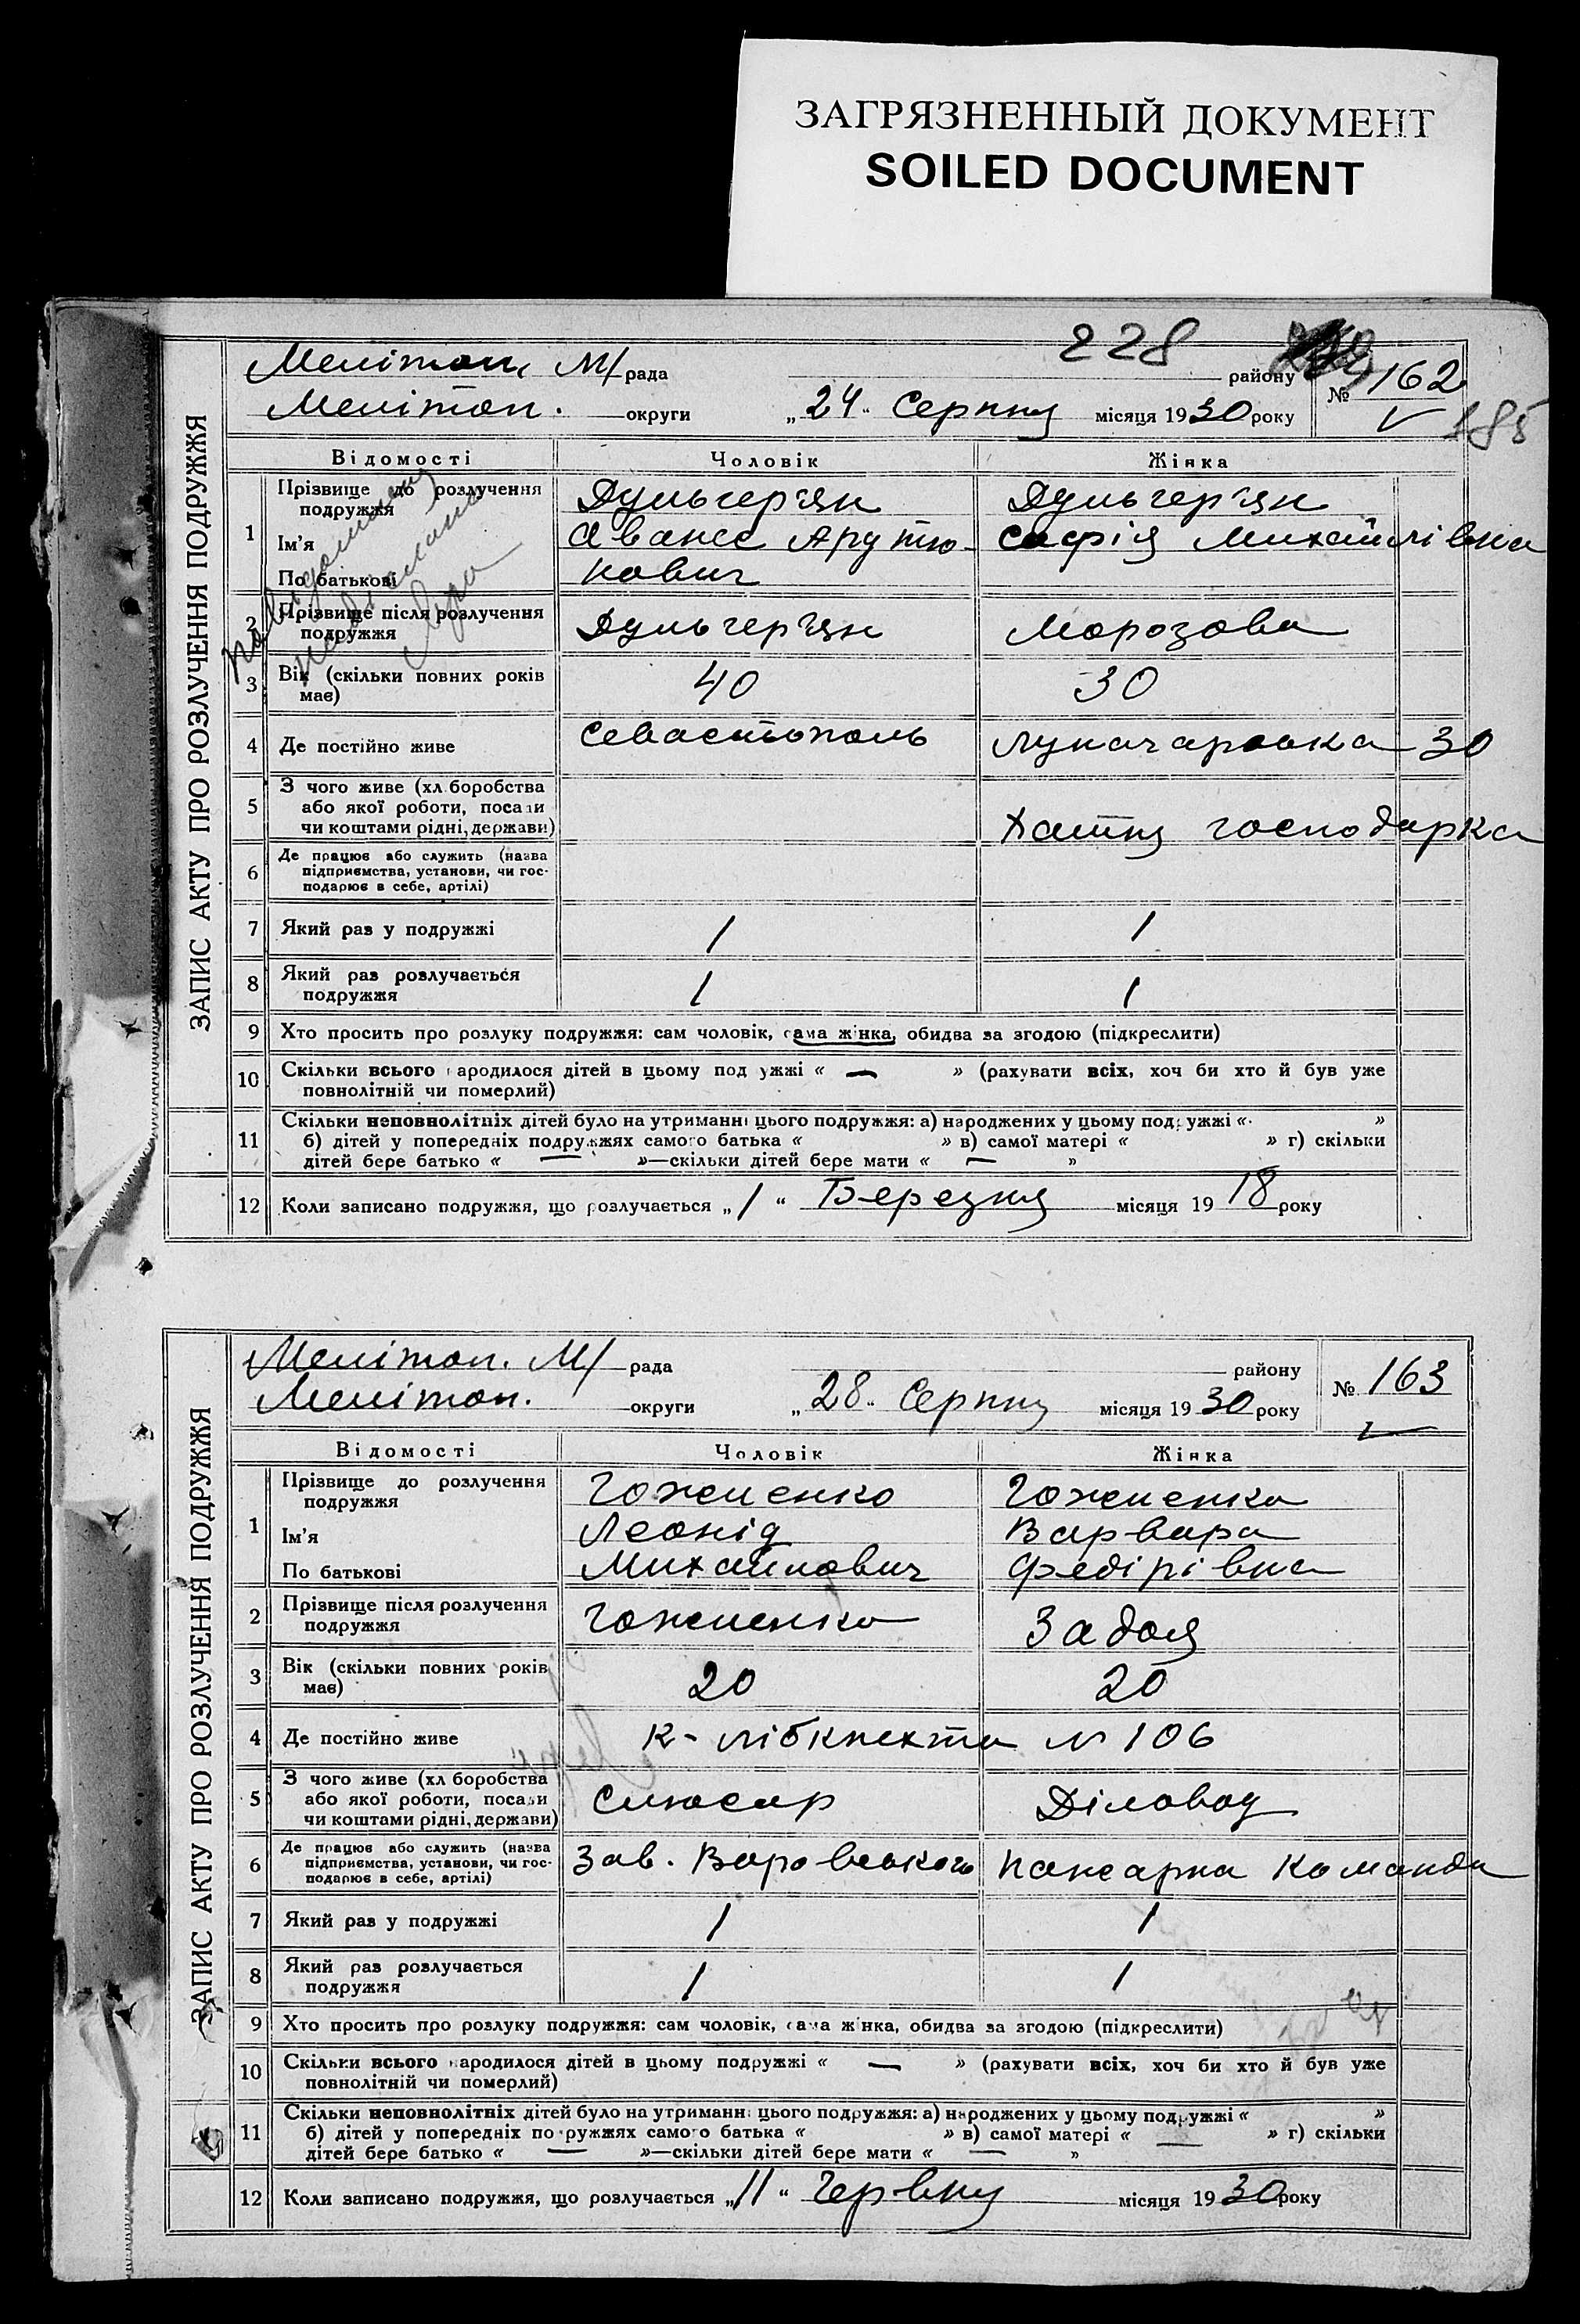 ЗАГРЯЗНЕННЫЙ ДОКУМЕНТ
SOILED DOCUMENT
228
ЗАПИС АКТУ ПРО РОЗЛУЧЕННЯ ПОДРУЖЖЯ
Мелітоп. М/рада району № 162
Мелітоп. округи „24“ Серпня місяця 1930 року
185
Відомості Чоловік Жінка
1 Прізвище до розлучення подружжя Дульгер'ян Дульгер'ян
Ім'я Аванес Арутю- Софія Михайлівна
По батькові нович
2 Прізвище після розлучення подружжя Дульгер'ян Морозова
3 Вік (скільки повних років має) 40 30
4 Де постійно живе Севастополь Луначарська 30
5 З чого живе (хл.боробства
або якої роботи, посади
чи коштами рідні, держави) Хатня господарка
6 Де працює або служить (назва
підприємства, установи, чи гос-
подарює в себе, артілі)
7 Який раз у подружжі 1 1
8 Який раз розлучається подружжя 1 1
9 Хто просить про розлуку подружжя: сам чоловік, сама жінка, обидва за згодою (підкреслити)
10 Скільки всього народилося дітей в цьому подружжі « — » (рахувати всіх, хоч би хто й був уже
повнолітній чи померлий)
11 Скільки неповнолітніх дітей було на утриманні цього подружжя: а) народжених у цьому подружжі « »
б) дітей у попередніх подружжях самого батька « » в) самої матері « » г) скільки
дітей бере батько « — »—скільки дітей бере мати « — »
12 Коли записано подружжя, що розлучається „1“ Березня місяця 1918 року
ЗАПИС АКТУ ПРО РОЗЛУЧЕННЯ ПОДРУЖЖЯ
Мелітоп. М/рада району № 163
Мелітоп. округи „28“ Серпня місяця 1930 року
Відомості Чоловік Жінка
1 Прізвище до розлучення подружжя Гожненко Гожненко
Ім'я Леонід Варвара
По батькові Михайлович Федірівна
2 Прізвище після розлучення подружжя Гожненко Задоя
3 Вік (скільки повних років має) 20 20
4 Де постійно живе К-Лібкнехта № 106
5 З чого живе (хл боробства
або якої роботи, посади
чи коштами рідні, держави) Слюсар Діловод
6 Де працює або служить (назва
підприємства, установи, чи гос-
подарює в себе, артілі) Зав. Воровського Пожарна команда
7 Який раз у подружжі 1 1
8 Який раз розлучається подружжя 1 1
9 Хто просить про розлуку подружжя: сам чоловік, сама жінка, обидва за згодою (підкреслити)
10 Скільки всього народилося дітей в цьому подружжі « — » (рахувати всіх, хоч би хто й був уже
повнолітній чи померлий)
11 Скільки неповнолітніх дітей було на утриманні цього подружжя: а) народжених у цьому подружжі « »
б) дітей у попередніх подружжях самого батька « » в) самої матері « — » г) скільки
дітей бере батько « — »—скільки дітей бере мати « — »
12 Коли записано подружжя, що розлучається „11“ Червня місяця 1930 року